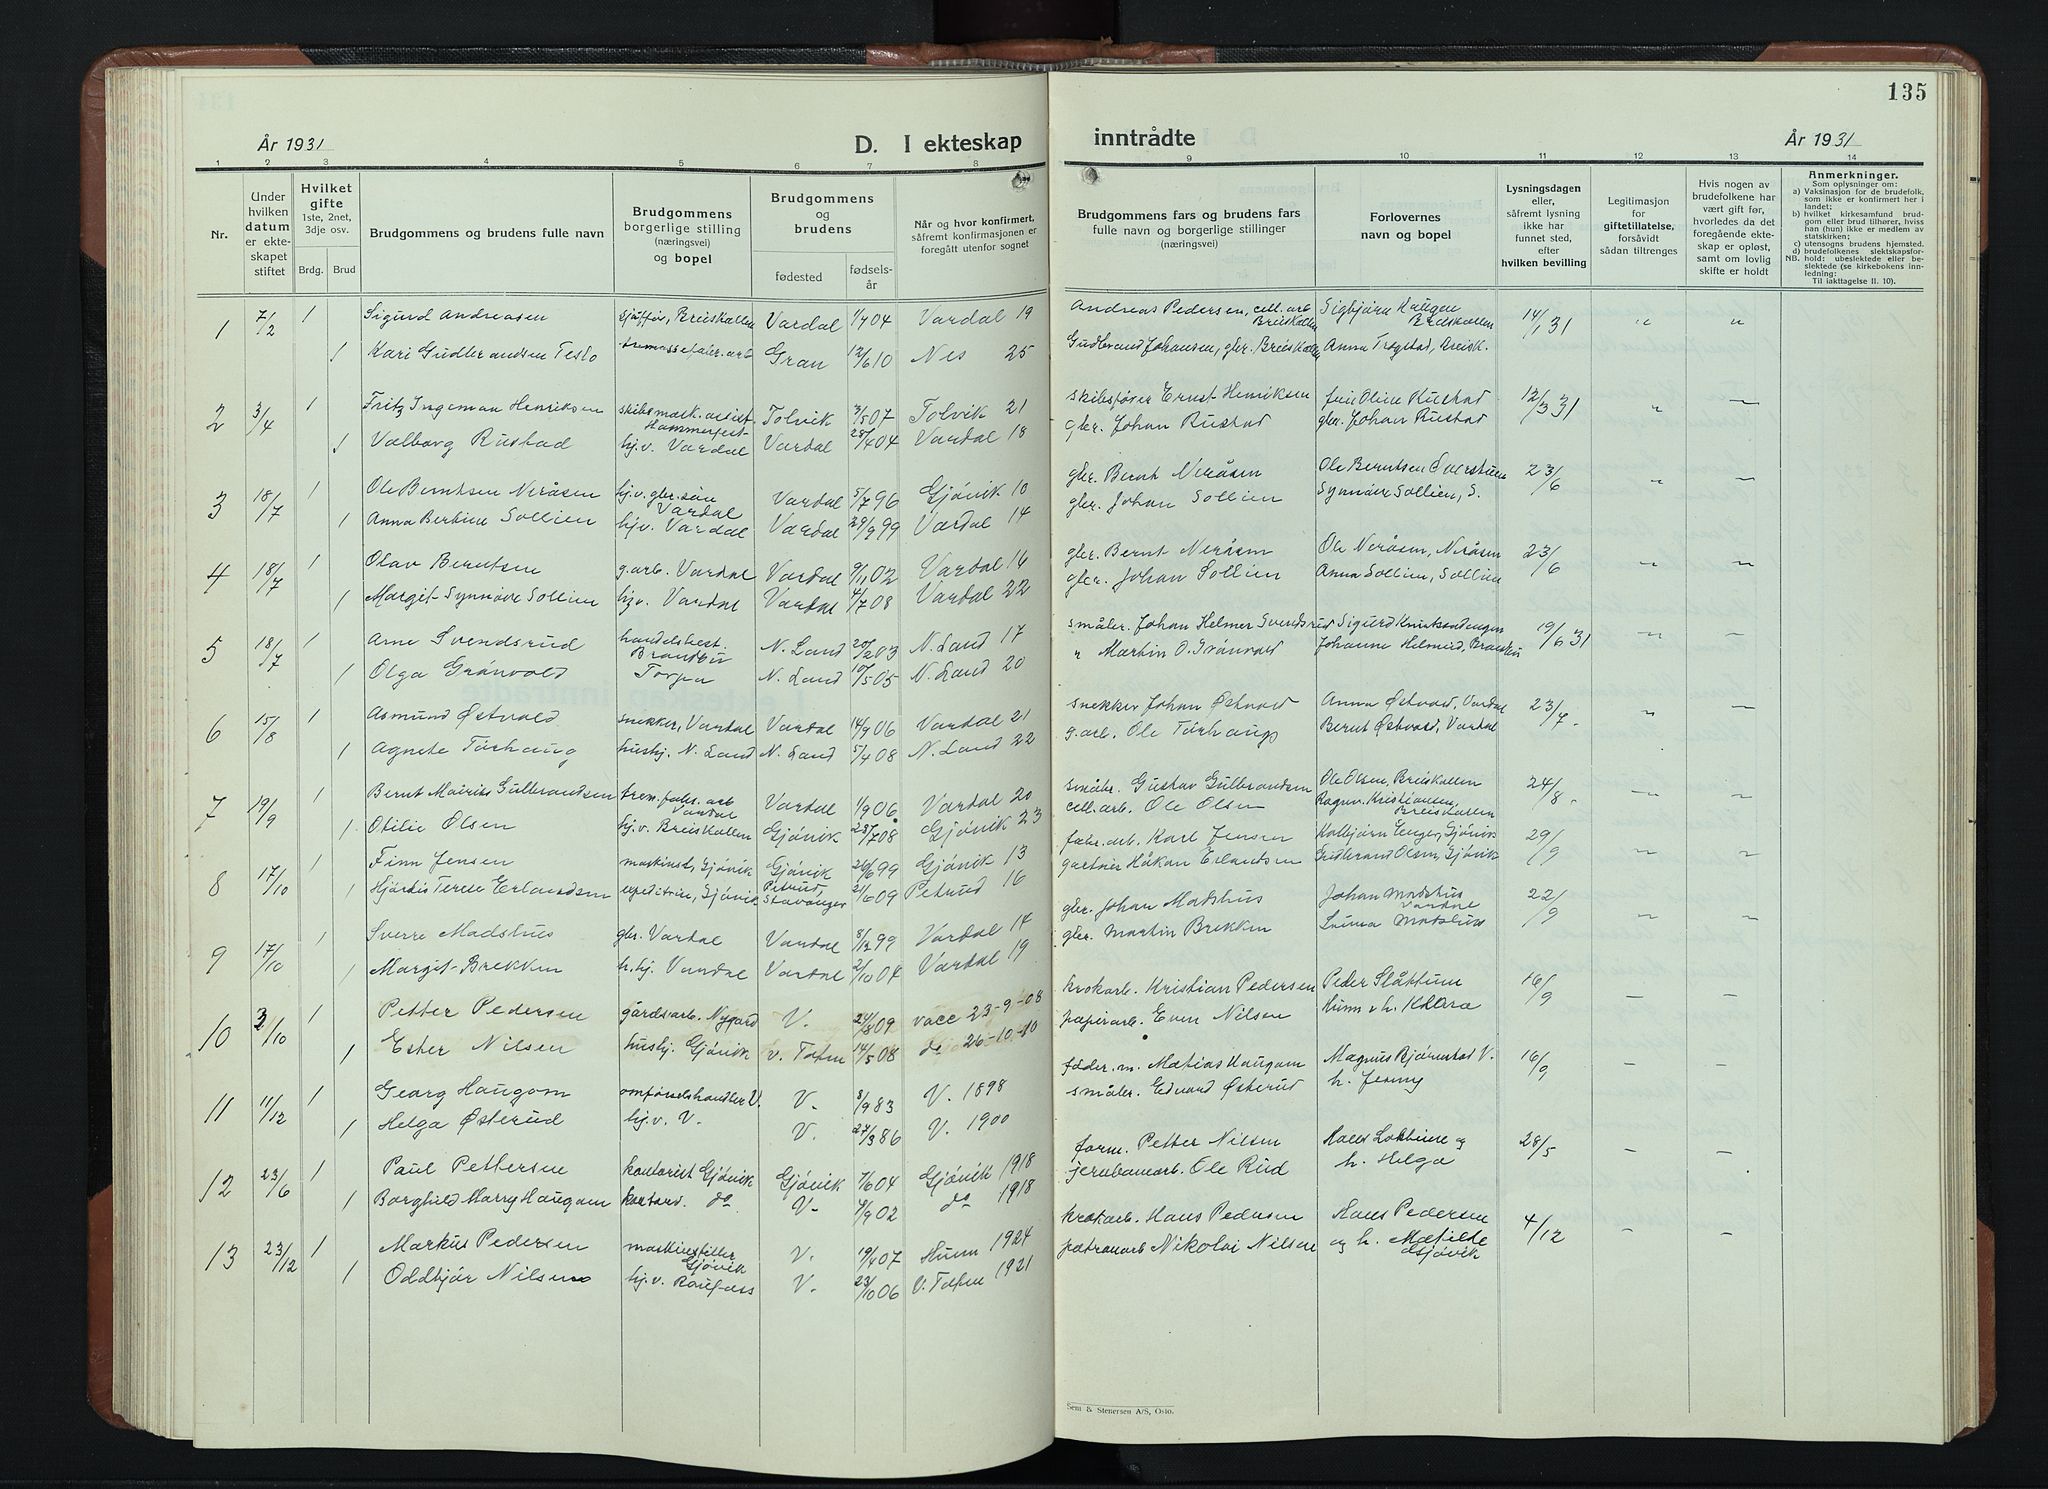 135
År 1931
D. I ekteskap inntrådte
År 1931
1 2 3 4 5 6 7 8 9 10 11 12 13 14
Nr.
Under hvilken datum er ekteskapet stiftet
Hvilket gifte 1ste, 2net, 3dje osv.
Brdg. Brud
Brudgommens og brudens fulle navn
Brudgommens borgerlige stilling (næringsvei) og bopel
Brudgommens og brudens
fødested fødselsår
Når og hvor konfirmert, såfremt konfirmasjonen er foregått utenfor sognet
Brudgommens fars og brudens fars fulle navn og borgerlige stillinger (næringsvei)
Forlovernes navn og bopel
Lysningsdagen eller, såfremt lysning ikke har funnet sted, efter hvilken bevilling
Legitimasjon for giftetillatelse, forsåvidt sådan tiltrenges
Hvis nogen av brudefolkene har vært gift før, hvorledes da det foregående ekteskap er opløst, samt om lovlig skifte er holdt
Anmerkninger.
Som oplysninger om:
a) Vaksinasjon for de brudefolk, som ikke er konfirmert her i landet;
b) hvilket kirkesamfund brudgom eller brud tilhører, hviss han (hun) ikke er medlem av statskirken;
c) utensogns brudens hjemsted.
d) brudefolkenes slektskapsforhold: ubeslektede eller beslektede (se kirkebokens innledning:
NB. Til iakttagelse II. 10).
1 7/2 1 Sigurd Andreasen sjåffør, Breiskallen Vardal 1/7 04 Vardal 19 Andreas Pedersen, cell. arb. Breiskallen Sigbjørn Haugen Breiskallen 14/1 31 " "
1 Kari Gudbrandsen Teslo Gran 12/6 10 Nes 25 Gudbrand Johansen, gbr. Breiskallen Anna Trogstad, Breisk.
2 3/4 1 Fritz Ingeman Henriksen skibsmask. assist. Hammerfest Tolvik 3/5 07 Tolvik 21 skibsfører Ernst Henriksen Oline Rustad 12/3 31 " "
1 Valborg Rustad hj.v. Vardal Vardal 28/4 04 Vardal 18 gbr. Johan Rustad gbr. Johan Rustad
3 18/7 1 Ole Berntsen Neråsen hj.v. gbr. søn Vardal Vardal 5/7 96 Gjövik 10 gbr. Bernt Neråsen Ole Berntsen 23/6 " "
1 Anna Bertine Sollien hj.v. Vardal Vardal 29/9 99 Vardal 14 gbr. Johan Sollien Synnøve Sollien, S.
4 18/7 1 Olav Berntsen g.arb. Vardal Vardal 9/11 02 Vardal 16 gbr. Bernt Neråsen Ole Neråsen, Neråsen 23/6 " "
1 Margit Synnøve Sollien hj.v. Vardal Vardal 4/7 08 Vardal 22 gbr. Johan Sollien Anna Sollien, Sollien
5 18/7 1 Arne Svendsrud handelsbest. Brandbu N. Land 20/2 03 N. Land 17 småbr. Johan Helmer Svendsrud Sigurd 19/6 31 " "
1 Olga Grønvold Torpa N. Land 10/5 05 N. Land 20 " Martin O. Grönvold Johanne
6 15/8 1 Asmund Østvold snekker, Vardal Vardal 14/9 06 Vardal 21 snekker Johan Østvold Anna Østvold, Vardal 23/7. " "
1 Agnete Torhaug hushj. N. Land N. Land 5/4 08 N. Land 22 g.arb. Ole Torhaug Bernt Østvold, Vardal
7 19/9 1 Bernt Marius Gulbrandsen trem. fabr. arb Vardal Vardal 1/9 06 Vardal 20 småbr. Gustav Gulbrandsen Ole Olsen, Breiskallen 24/8. " "
1 Otilie Olsen hj.v. Breiskallen Gjövik 28/7 08 Gjövik 23 cell. arb. Ole Olsen Ragnv. Kristiansen, Breiskallen
8 17/10 1 Finn Jensen maskinst, Gjövik Gjövik 26/6 99 Gjövik 13 fabr. arb. Karl Jensen Kolbjørn Enger, Gjövik 29/9 " "
1 Hjørdis Terese Erlandsen expeditrise, Gjövik Petrud, Stavanger 21/6 09 Petrud 16 gartner Håkon Erlandsen Gudbrand Olsen, Gjövik
9 17/10 1 Sverre Madshus gbr. Vardal Vardal 8/12 99 Vardal 14 gbr. Johan Madshus Johan Madshus Vardal 22/9 " "
1 Margit Brekken h.hj. Vardal Vardal 2/10 04 Vardal 19 gbr. Martin Brekken Madshus
10 3/10 1 Petter Pedersen gårdsarb. Nygard V. 24/8 09 vacc 23-9-08 krokarb. Kristian Pedersen Peder Slåttum 16/9 - -
1 Ester Nilsen hushj. Gjövik V. Toten 14/5 08 do 26-10-10 papirarb. Even Nilsen Hunn og h. Klara
11 11/12 1 Georg Haugom omförselshandler V. V. 8/9 83 V. 1898 föder. m. Matias Haugom Magnus Bjørnstad V. 16/9 - -
1 Helga Østerud hj.v. V. V. 27/3 86 V. 1900 småbr. Edvard Østerud h. Jenny
12 23/6 1 Paul Pettersen kontorist Gjövik Gjövik 7/6 04 Gjövik 1918 form. Petter Nilsen Hans og 28/5 - -
1 Borghild Marry Haugom kontord. do V. 4/9 02 do 1918 jernbanearb. Ole Rud h. Helga
13 23/12 1 Markus Pedersen maskinstiller Gjövik V. 19/4 07 Hunn 1924 krokarb. Hans Pedersen Hans Pedersen 4/12 - -
1 Oddbjør Nilsen hj.v. Raufoss V. 23/10 06 V. Toten 1921 patronarb Nikolai Nilsen og h. Matilde Gjövik
Sem & Stenersen A/S, Oslo.